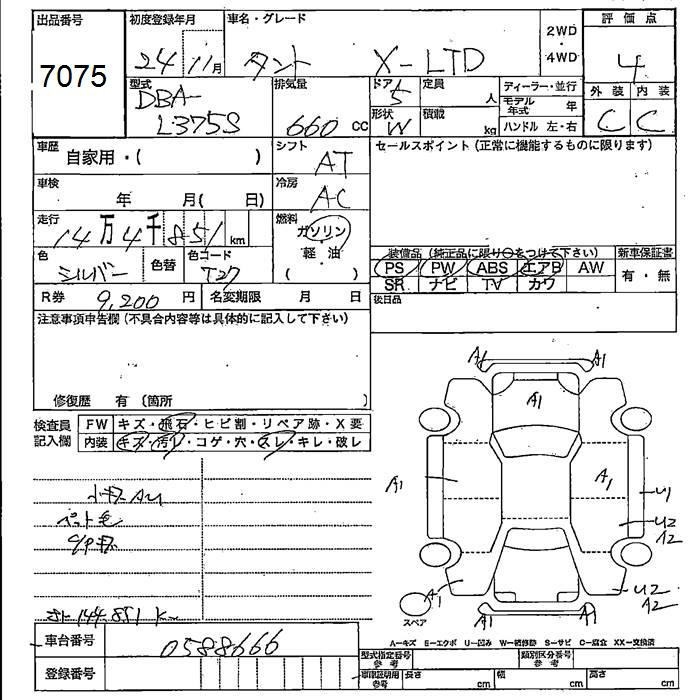 出品番号 初度登録年月 車名・グレード 2WD・4WD 評価点
7075 24 11月 タント X-LTD 4
型式 排気量 ドア 定員 ディーラー・並行 外装 内装
DBA-L375S 660 cc 5 人 モデル年式 年 C C
形状 積載 ハンドル 左・右
W kg
車歴 自家用・( ) シフト AT セールスポイント (正常に機能するものに限ります)
車検 年 月( 日) 冷房 AC
走行 14万4千851km 燃料 ガソリン
軽・油
( )
色 シルバー 色替 色コード T27
装備品 (純正品に限り○をつけて下さい) 新車保証書
PS PW ABS エアB AW 有・無
SR ナビ TV カワ
R券 9,200円 名変期限 月 日 後日品
注意事項申告欄 (不具合内容等は具体的に記入して下さい)
修復歴 有 (箇所 )
検査員記入欄 FW キズ・飛石・ヒビ割・リペア跡・X要
内装 キズ・汚レ・コゲ・穴・スレ・キレ・破レ
小キズ AU
ペット毛
144.851 K
A1 A1
A1
A1 A1 U1
U2
A2
A1 U2
A2
A1 A1
スペア
A-キズ E-エクボ U-凹み W-補修跡 S-サビ C-腐食 XX-交換済
車台番号 0588666
型式指定番号 参考 類別区分番号 参考
登録番号 車庫証明用 参考 長さ cm 幅 cm 高さ cm